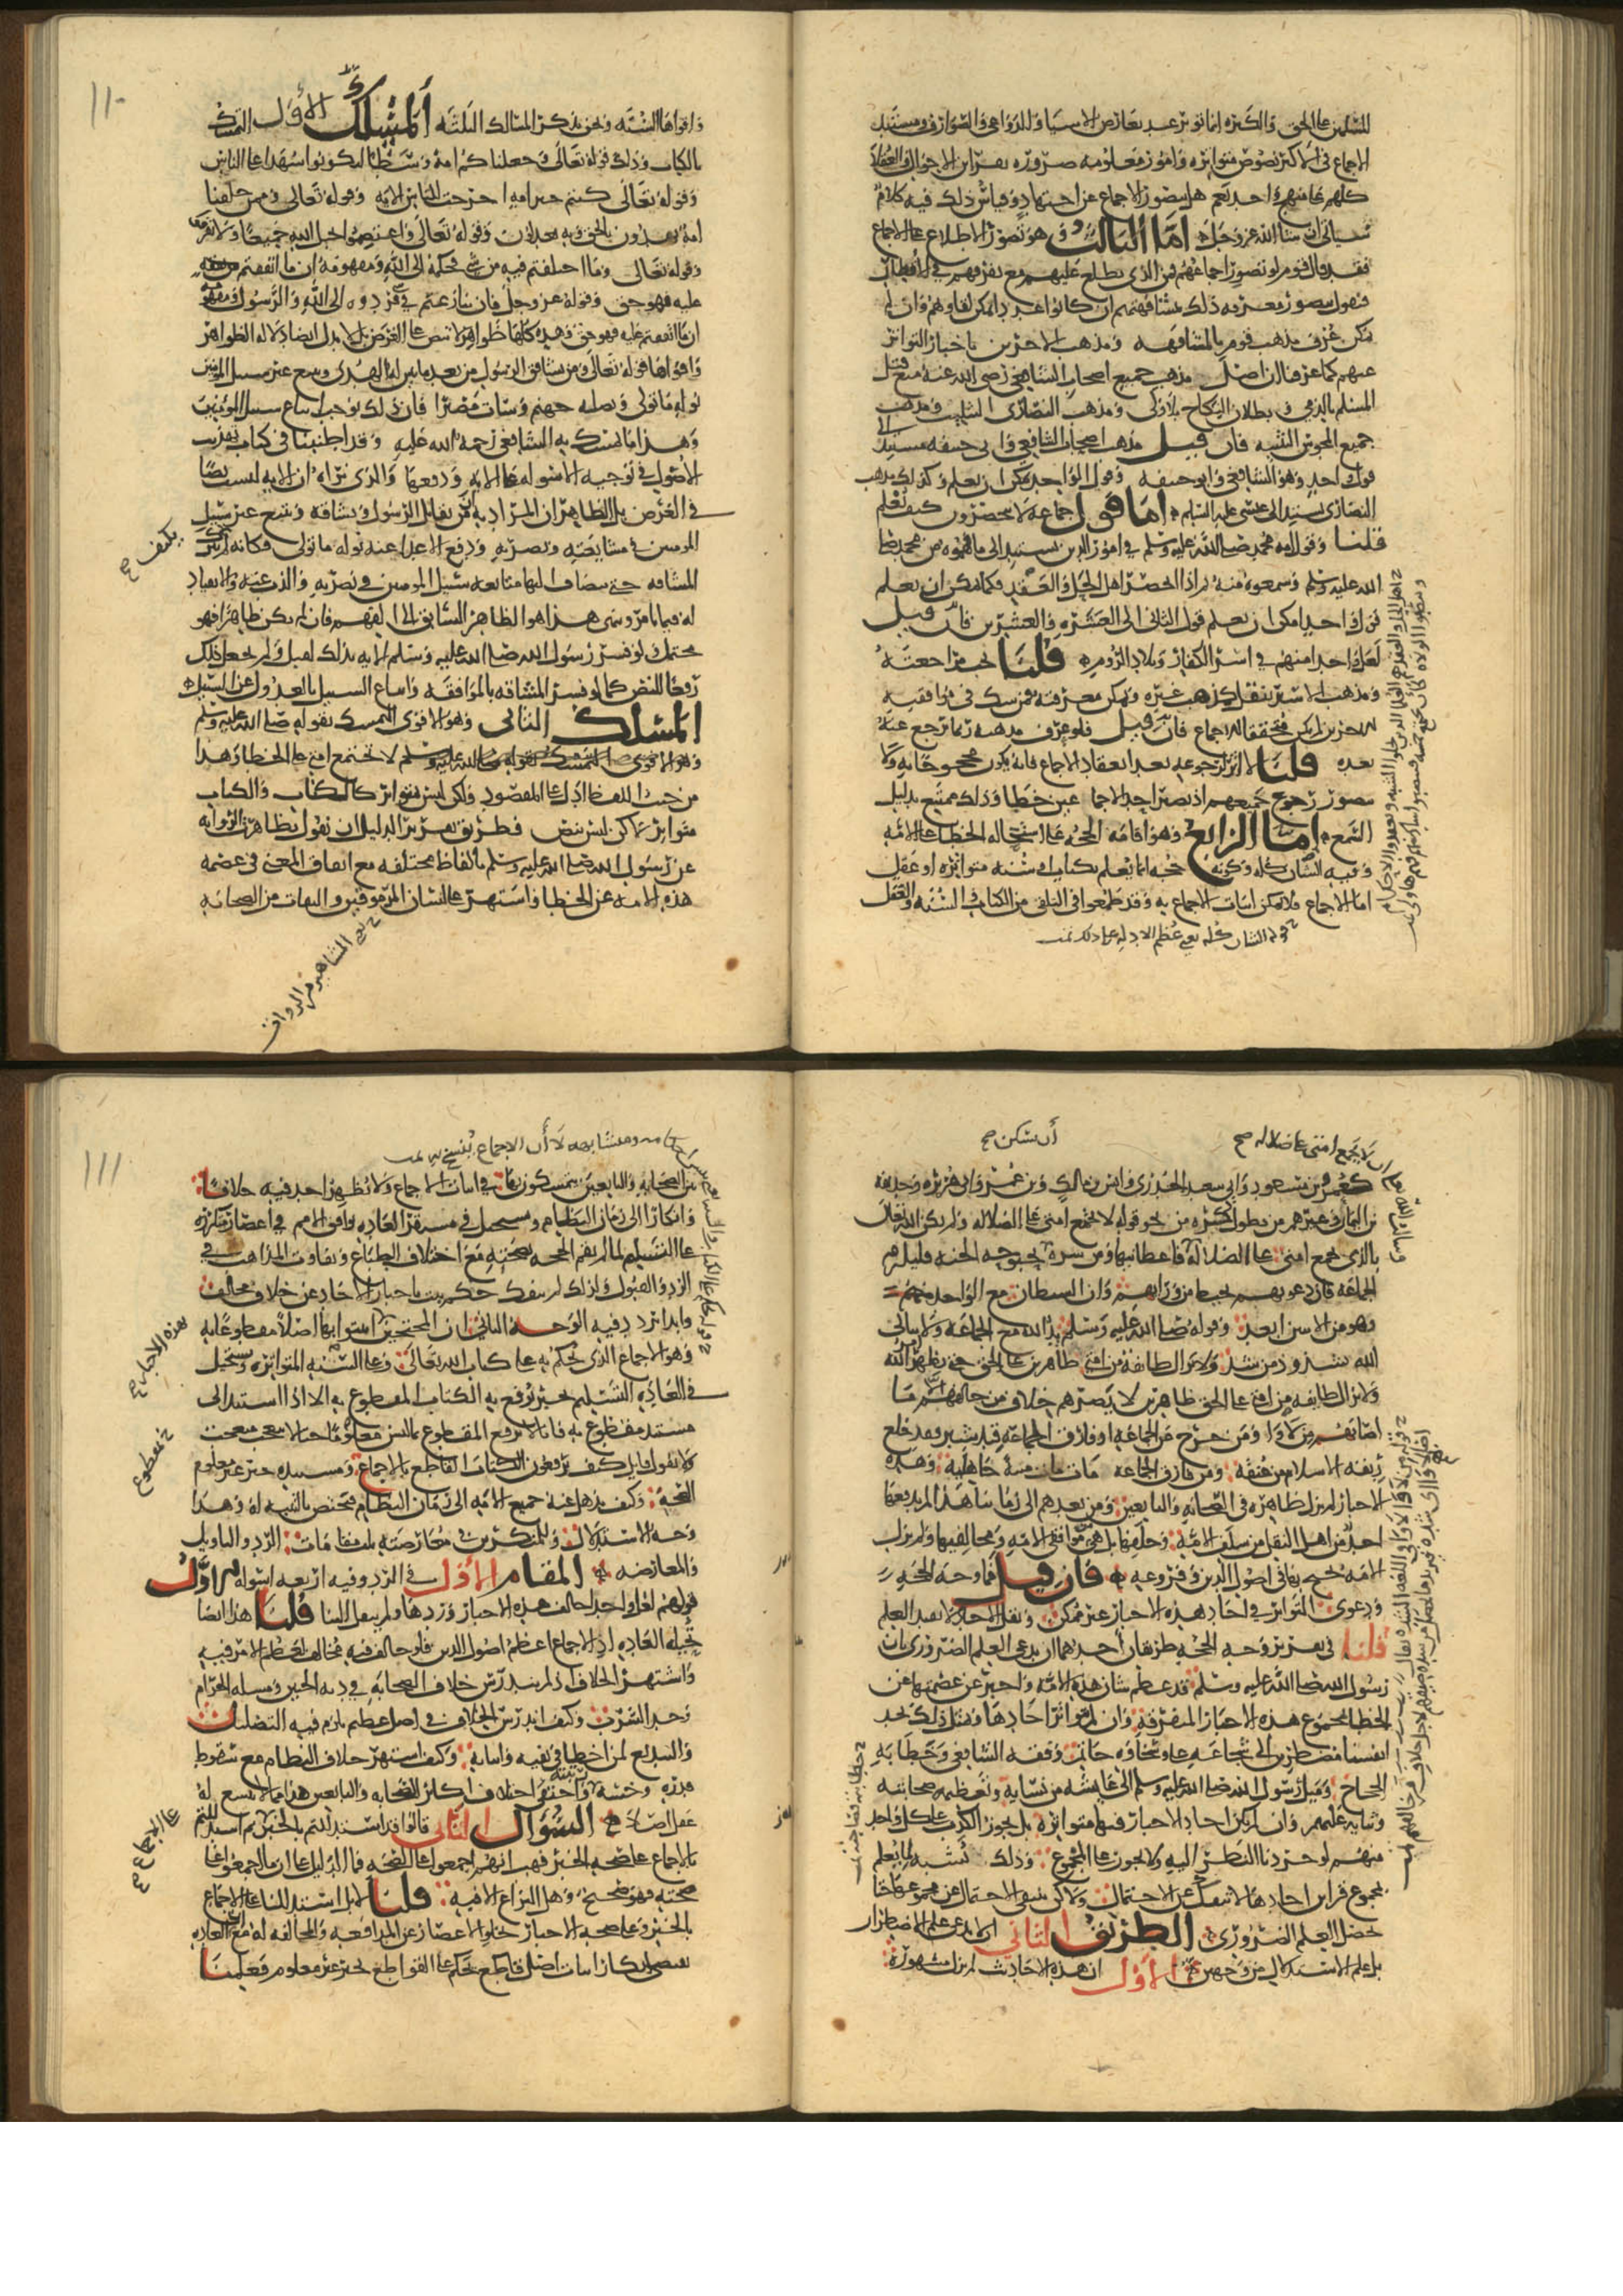 للمسلمين على الحق والكثرة إنما تؤثر عند تعارض الأشباه والدواعي والصوارف ومستند
الإجماع في الأكثر نصوص متواترة وأمور معلومة ضرورة بقرائن الأحوال والعقلاء
كلهم على منهج واحد نعم هل يتصور الإجماع عن اجتهاد أو قياس ذلك فيه كلام
سيأتي إن شاء الله عز وجل أما الثالث وهو تصور الاطلاع على الإجماع
فقد قال قوم لو تصور إجماعهم فمن الذي يطلع عليهم مع تفرقهم في الأقطار
فنقول يتصور معرفة ذلك بمشافهتهم إن كانوا عددا يمكن لقاؤهم وإن لم
يمكن عرف مذهب قوم بالمشافهة ومذهب الآخرين بأخبار التواتر
عنهم كما عرفنا أن مذهب جميع أصحاب الشافعي رضي الله عنه منع قتل
المسلم بالذمي وبطلان النكاح بلا ولي ومذهب النصارى التثليث ومذهب
جميع المجوس التثنية فإن قيل مذهب أصحاب الشافعي وأبي حنيفة مستند إلى
قول واحد وهو الشافعي وأبو حنيفة وقول الواحد يمكن أن يعلم وكذلك مذهب
النصارى يستند إلى عيسى عليه السلام أما قول جماعة لا ينحصرون كيف يعلم
قلنا وقول أمة محمد صلى الله عليه وسلم في أمور الدين يستند إلى ما فهموه من محمد صلى
الله عليه وسلم وسمعوه منه ثم إذا انحصر أهل الحل والعقد فكما يمكن أن يعلم
قول واحد أمكن أن يعلم قول الثاني إلى العشرة والعشرين فإن قيل
لعل واحدا منهم في أسر الكفار وبلاد الروم قلنا تجب مراجعته
ومذهب الأسير ينقل كمذهب غيره وتمكن معرفته فمن شك في موافقته
للآخرين لم يكن متحققا للإجماع فإن قيل فلو عرف مذهبه ربما يرجع عنه
بعده قلنا لا أثر لرجوعه بعد انعقاد الإجماع فإنه يكون محجوجا به ولا
يتصور رجوع جميعهم إذ يصير أحد الإجماعين خطأ وذلك ممتنع بدليل
السمع أما الرابع فهو إقامة الحجة على استحالة الخطأ على الأمة
وفيه الشأن كله وكونه حجة إنما يعلم بكتاب أو سنة متواترة أو عقل
أما الإجماع فلا يمكن إثبات الإجماع به وقد طمعوا في التلقي من الكتاب والسنة والعقل
١١٠
وأقواها السنة ونحن نذكر المسالك الثلثة المسلك الأول التمسك
بالكتاب وذلك قوله تعالى وكذلك جعلناكم أمة وسطا لتكونوا شهداء على الناس
وقوله تعالى كنتم خير أمة أخرجت للناس الآية وقوله تعالى وممن خلقنا
أمة يهدون بالحق وبه يعدلون وقوله تعالى واعتصموا بحبل الله جميعا ولا تفرقوا
وقوله تعالى وما اختلفتم فيه من شيء فحكمه إلى الله ومفهومه أن ما اتفقتم
عليه فهو حق وقوله عز وجل فإن تنازعتم في شيء فردوه إلى الله والرسول ومفهومه
إن اتفقتم عليه فهو حق فهذه كلها ظواهر لا تنص على الغرض بل لا تدل أيضا دلالة الظواهر
وأقواها قوله تعالى ومن يشاقق الرسول من بعد ما تبين له الهدى ويتبع غير سبيل المؤمنين
نوله ما تولى ونصله جهنم وساءت مصيرا فإن ذلك يوجب اتباع سبيل المؤمنين
وهذا ما تمسك به الشافعي رحمة الله عليه وقد أطنبنا في كتاب تهذيب
الأصول في توجيه الأسولة على الآية ودفعها والذي نراه أن الآية ليست نصا
في الغرض بل الظاهر أن المراد به أن من يقاتل الرسول ويشاقه ويتبع غير سبيل
المؤمنين في مشايعته ونصرته ودفع الأعداء عنه نوله ما تولى فكأنه لم يكتف بترك
المشاقة حتى يضاف إليها متابعة سبيل المؤمنين في نصرته والذب عنه والانقياد
له فيما يأمر وينهى هذا هو الظاهر السابق إلى الفهم فإن لم يكن ظاهرا فهو
محتمل ولو فسر رسول الله صلى الله عليه وسلم الآية بذلك لقبل ولم يجعل ذلك
رفعا للنص كما لو فسر المشاقة بالموافقة واتباع السبيل بالعدول عن السبيل
المسلك الثاني وهو الأقوى التمسك بقوله صلى الله عليه وسلم
لا تجتمع أمتي على الخطأ وهذا
من حيث اللفظ أدل على المقصود ولكن ليس متواترا كالكتاب والكتاب
متواتر لكن ليس بنص فطريق تقرير الدليل أن نقول تظاهرت الرواية
عن رسول الله صلى الله عليه وسلم بألفاظ مختلفة مع اتفاق المعنى في عصمة
هذه الأمة عن الخطأ واشتهر على لسان المرموقين والثقات من الصحابة
يكتف صح
لا تجمع أمتي على ضلالة صح
أن يسكن صح
كعمر وبن مسعود وأبي سعيد الخدري وأنس بن مالك وبن عمر وأبي هريرة وحذيفة
بن اليمان وغيرهم ممن يطول ذكره من نحو قوله لا تجتمع أمتي على الضلالة ولم يكن الله تعالى
بالذي يجمع أمتي على الضلالة فأعطانيها ومن سره بحبوحة الجنة فليلزم
الجماعة فإن دعوتهم تحيط من ورائهم وأن الشيطان مع الواحد
وهو من الاثنين أبعد وقوله صلى الله عليه وسلم يد الله مع الجماعة ولا يبالي
الله بشذوذ من شذ ولا تزال طائفة من أمتي ظاهرين على الحق حتى يظهر أمر الله
ولا تزال طائفة من أمتي على الحق ظاهرين لا يضرهم خلاف من خالفهم إلا ما
أصابهم من لأواء ومن خرج عن الجماعة أو فارق الجماعة قيد شبر فقد خلع
ربقة الإسلام من عنقه ومن فارق الجماعة مات مات ميتة جاهلية وهذه
الأخبار لم تزل ظاهرة في الصحابة والتابعين ومن بعدهم إلى زماننا هذا لم يدفعها
أحد من أهل النقل من سلف الأمة وخلفها بل هي من موافقي الأمة ومخالفيها ولم تزل
الأمة تحتج بها في أصول الدين وفروعه فإن قيل فما وجه الحجة
ودعوى التواتر في آحاد هذه الأخبار غير ممكن ونقل الآحاد لا يفيد العلم
قلنا في تقرير وجه الحجة طريقان أحدهما أن يدعى العلم الضروري بأن
رسول الله صلى الله عليه وسلم قد عظم شأن هذه الأمة وأخبر عن عصمتها عن
الخطأ بمجموع هذه الأخبار المتفرقة وإن لم تتواتر آحادها وبمثل ذلك نجد
أنفسنا مضطرين إلى شجاعة علي وسخاوة حاتم وفقه الشافعي وخطابة
الحجاج وميل رسول الله صلى الله عليه وسلم إلى عايشة من نسايه وتعظيمه صحابته
وثنايه عليهم وإن لم يكن آحاد الأخبار فيها متواترة بل يجوز الكذب على كل واحد
منها لو جردنا النظر إليه ولا يجوز على المجموع وذلك يشبه ما يعلم
بمجموع قراين آحادها لا تنفك عن الاحتمال ولكن ينتفي الاحتمال عن مجموعها حتى
يحصل العلم الضروري الطريق الثاني أن لا ندعي علم الاضطرار
بل علم الاستدلال من وجهين الأول أن هذه الأحاديث لم تزل مشهورة
١١١
بين الصحابة والتابعين يتمسكون بها في إثبات الإجماع ولا يظهر أحد فيه خلافا
وإنكارا إلى زمان النظام ويستحيل في مستقر العادة توافق الأمم في أعصار متكررة
على التسليم لما لم تقم الحجة بصحته مع اختلاف الطباع وتفاوت المذاهب في
الرد والقبول ولذلك لم ينفك حكم ثبت بأخبار الآحاد عن خلاف مخالف
وإبداء تردد فيه الوجه الثاني أن المحتجين أثبتوا بها أصلا مقطوعا به
وهو الإجماع الذي يحكم به على كتاب الله تعالى وعلى السنة المتواترة ويستحيل
في العادة التسليم بخبر يرفع به الكتاب المقطوع به إلا إذا استند إلى
مستند مقطوع به فأما رفع المقطوع بما ليس معلوما
لا يقول قايل كيف ترفعون الكتاب القاطع بالإجماع ومستنده خبر غير معلوم
الصحة وكيف يذهل عنه جميع الأمة إلى زمان النظام فيختص بالتنبه له وهذا
وجه الاستدلال وللمنكرين في معارضته ثلث مقامات الرد والتأويل
والمعارضة المقام الأول في الرد وفيه أربعة أسولة الأول
قولهم لعل واحدا خالف هذه الأخبار وردها ولم ينقل إلينا قلنا هذا أيضا
تحيله العادة إذ الإجماع أعظم أصول الدين فلو خالف فيه مخالف لعظم الأمر فيه
واشتهر الخلاف إذ لم يندرس خلاف الصحابة في دية الجنين ومسئلة الحرام
وحد الشرب وكيف اندرس الخلاف في أصل عظيم يلزم فيه التضليل
والتبديع لمن أخطأ في نفيه وإثباته وكيف اشتهر خلاف النظام مع سقوط
قدره وخسة رتبته واختفى خلاف أكابر الصحابة والتابعين هذا مما لا يتسع له
عقل أصلا السؤال الثاني قالوا قد استدللتم بالخبر ثم استدللتم
بالإجماع على صحة الخبر فهب أنهم أجمعوا على الصحة فما الدليل على أن ما أجمعوا على
صحته فهو صحيح وهل النزاع إلا فيه قلنا لا بل استدللنا على الإجماع
بالخبر وعلى صحة الأخبار بخلو الأعصار عن المدافعة والمخالفة له مع أن العادة
تقتضي إنكار إثبات أصل قاطع يحكم على القواطع بخبر غير معلوم فعلمنا
هذه الأخبار صح
على الإجماع صح